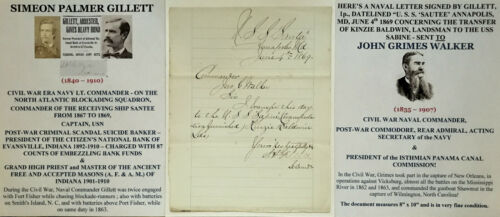 SIMEON PALMER GILLETT
GILLETT, ARRESTED,
GIVES HEAVY BOND
(1840 – 1910)
CIVIL WAR ERA NAVY LT. COMMANDER - ON THE
NORTH ATLANTIC BLOCKADING SQUADRON,
COMMANDER OF THE RECEIVING SHIP SANTEE
FROM 1867 TO 1869,
CAPTAIN, USN
POST-WAR CRIMINAL SCANDAL SUICIDE BANKER -
PRESIDENT OF THE CITIZEN'S NATIONAL BANK OF
EVANSVILLE, INDIANA 1892-1910 - CHARGED WITH 87
COUNTS OF EMBEZZLING BANK FUNDS
&
GRAND HIGH PRIEST and MASTER OF THE ANCIENT
FREE AND ACCEPTED MASONS (A. F. & A. M.) OF
INDIANA 1901-1910
During the Civil War, Naval Commander Gillett was twice engaged
with Fort Fisher while chasing blockade-runners ; also with batteries
on Smith's Island, N. C., and with batteries above Fort Fisher, while
on same duty in 1863.
U.S.S. Santee
Annapolis Md
June 4th 1869.
Commander
Jno. G. Walker
Sir
I transfer this day
to the U.S.S. Sabine
Kinzie Baldwin
HERE'S A NAVAL LETTER SIGNED BY GILLETT,
1p., DATELINED "U. S. S. 'SAUTEE' ANNAPOLIS,
MD, JUNE 4th 1869 CONCERNING THE TRANSFER
OF KINZIE BALDWIN, LANDSMAN TO THE USS
SABINE - SENT TO
JOHN GRIMES WALKER
(1835 – 1907)
CIVIL WAR NAVAL COMMANDER,
POST-WAR COMMODORE, REAR ADMIRAL, ACTING
SECRETARY OF THE NAVY
&
PRESIDENT OF THE ISTHMIAN PANAMA CANAL
COMMISSION!
In the Civil War, Grimes took part in the capture of New Orleans, in
operations against Vicksburg, almost all the battles on the Mississippi
River in 1862 and 1863, and commanded the gunboat Shawmut in the
capture of Wilmington, North Carolina!
The document measures 8" x 10" and is in very fine condition.